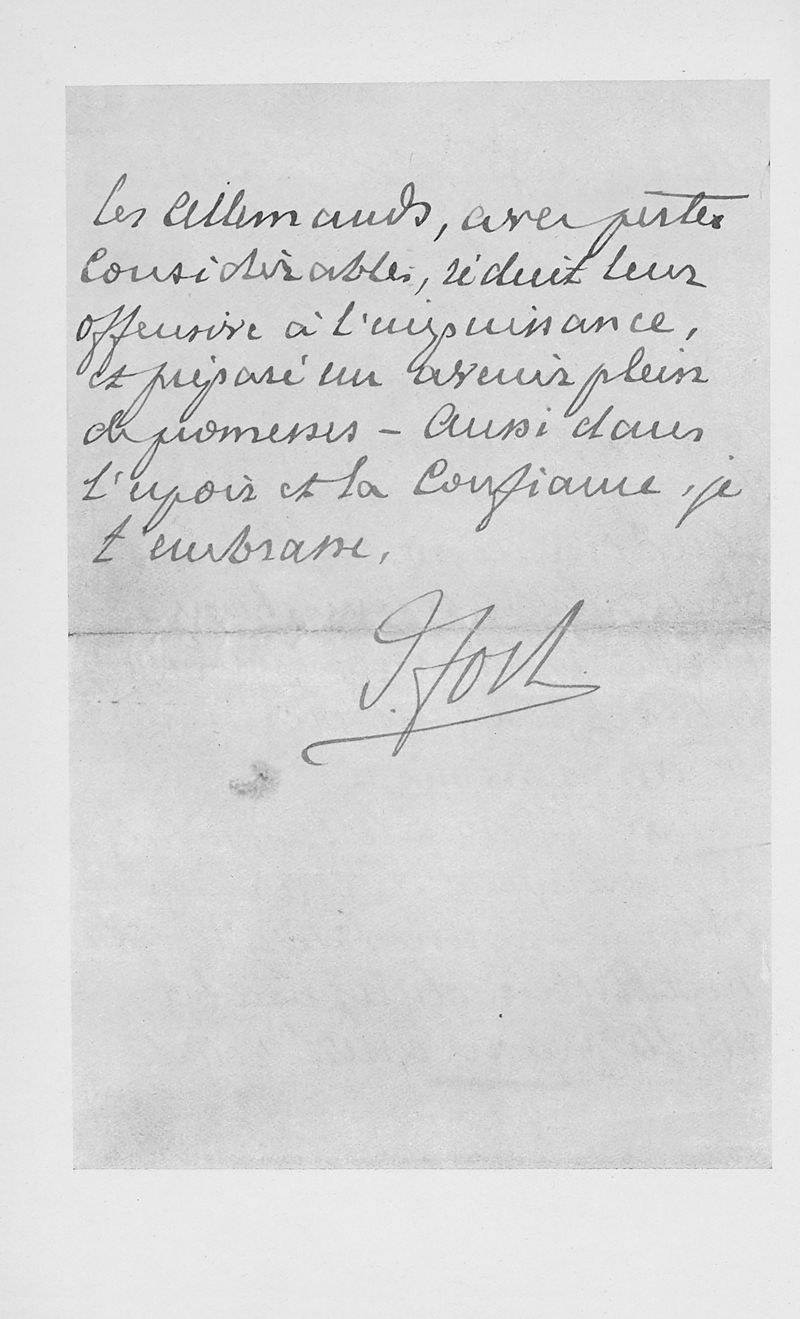 les Allemands, avec pertes
Considérables, réduit leur
offensive à l'impuissance,
et préparé un avenir plein
de promesses – Aussi dans
l'espoir et la Confiance, je
t'embrasse,
F. Foch